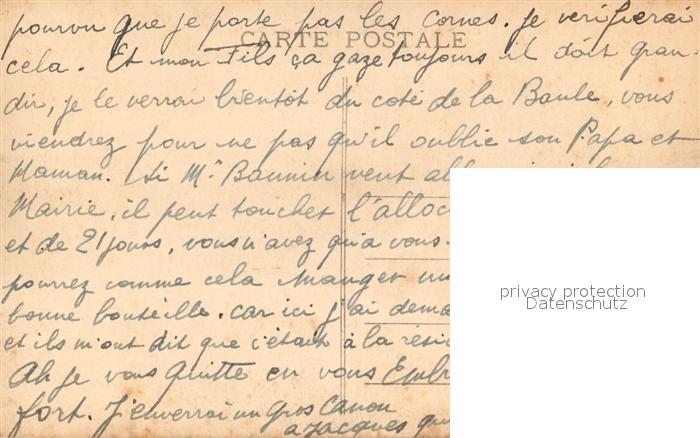 pourvu que je porte pas les cornes. je verifierai
CARTE POSTALE
cela. Et mon Fils ça gaze toujours il doit gran-
dir, je le verrai bientôt du coté de la Baule, vous
viendrez pour ne pas qu'il oublie son Papa et
Maman. Si Mr veut
Mairie, il peut toucher l'alloc
et de 21 jours, vous n'avez qu'a vous
pourrez comme cela manger un
bonne bouteille. car ici j'ai dema
et ils m'ont dit que c'était à la rési
Ah je vous quitte en vous Embr
fort. J'enverrai un gros canon
a Jacques
privacy protection
Datenschutz